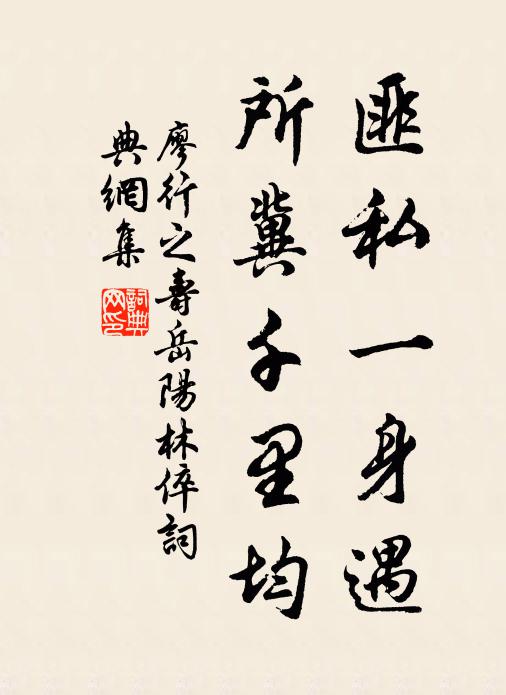 匪私一身遇
所冀千里均
廖行之壽岳陽林倅詞
典網集
詞典网印